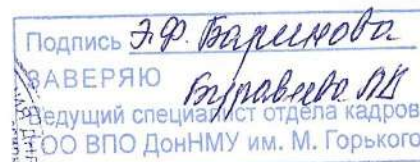 Подпись Э.Ф. Баринова
ЗАВЕРЯЮ
Ведущий специалист отдела кадров
ГОО ВПО ДонНМУ им. М. Горького